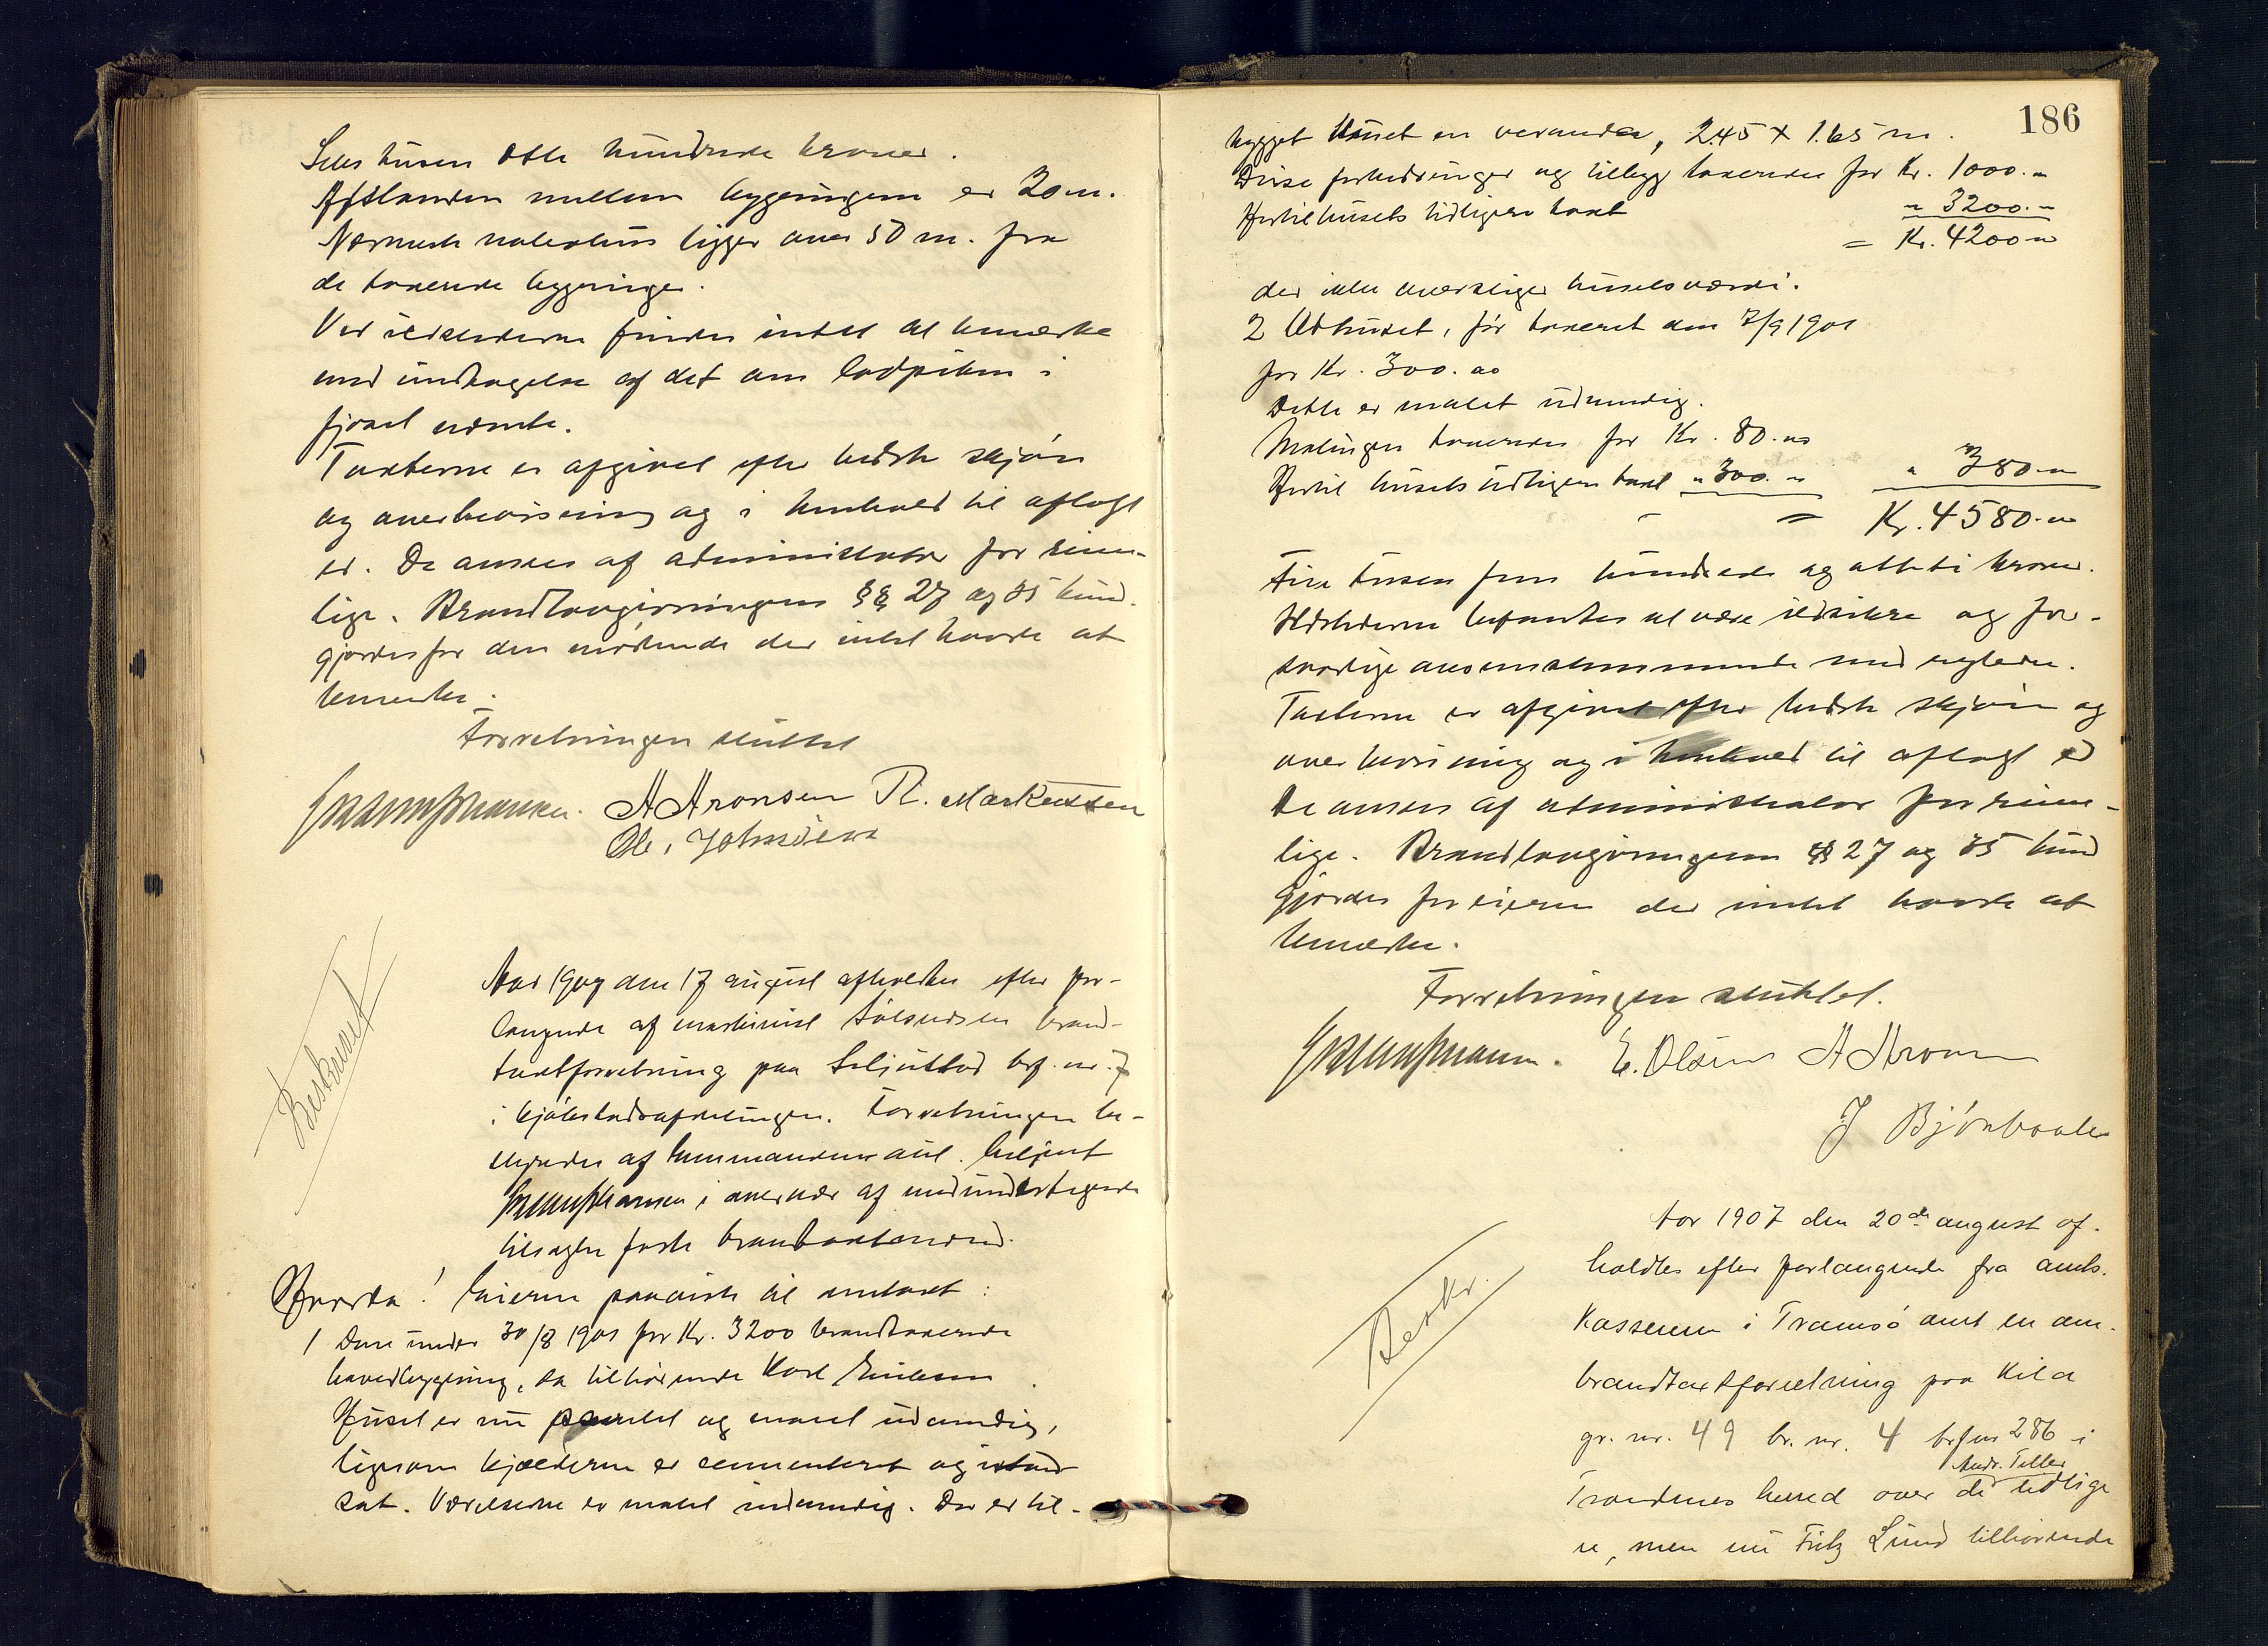 hundrede kroner.
Afstanden mellem bygningerne er 20 m.
Nærmeste nabohus ligger over 50 m. fra
de taxerede bygninger.
Ved ildstederne findes intet at bemærke
med undtagelse af det om i
fjøset nævnte.
Taxterne er afgivet efter bedste skjøn
og overbevisning og i henhold til aflagt
ed. De ansees af administrator for rime-
lige. Brandlovgivningens §§ 27 og 35 kund-
gjordes for den mødende der intet havde at
bemerke.
Forretningen sluttet
A Aronsen R. Markussen
Ole, Johnsen
Beskrevet
Aar 1907 den 17 august afholdtes efter for-
langende af maskinist brand-
taxtforretning paa brf. nr. 7
i kjøbstadsafdelingen. Forretningen be-
styredes af lensmanden
i overvær af medundertegnede
tilsagte faste brandtaxtmænd.
Hvorda! Eieren paaviste til omtaxt:
1 Den under 30/8 1901 for Kr. 3200 brandtaxerede
hovedbygning, da tilhørende Karl
Huset er nu panelet og malet udvendig,
ligesom kjælderen er cementeret og istand
sat. Værelserne er malet indvendig. Der er til-
186
bygget huset en veranda, 2.45 x 1.65 m.
Disse forbedringer og tillegg taxeredes for Kr. 1000.-
Hertil husets tidligere taxt " 3200.-
= Kr. 4200 "
der ikke overstiger husets værdi.
2 Udhuset, før taxeret den 7/9 1901
for Kr. 300.00
Dette er malet udvendig.
Malingen taxeredes for Kr. 80.00
Hertil husets tidligere taxt " 300. " " 380.-
= Kr. 4580.-
Fire tusen fem hundrede og otteti kroner.
Ildstederne befandtes at være ildsikre og for-
svarlige overensstemmende med reglerne.
Taxterne er afgivet efter bedste skjøn og
overbevisning og i henhold til aflagt ed
De ansees af administrator for rime-
lige. Brandlovgivningens §§ 27 og 35 kund
gjordes for eieren der intet havde at
bemerke.
Forretningen sluttet.
E. Olsen A Aronsen
J
Beskr.
Aar 1907 den 20de august af-
holdtes efter forlangende fra amts-
kassereren i Tromsø amt en om-
brandtaxtforretning paa Kila
gr. nr. 49 br. nr. 4 brf nr 286 i
Andr. Teller
Trondenes herred over de tidlige
re, men nu Fritz Lund tilhørende